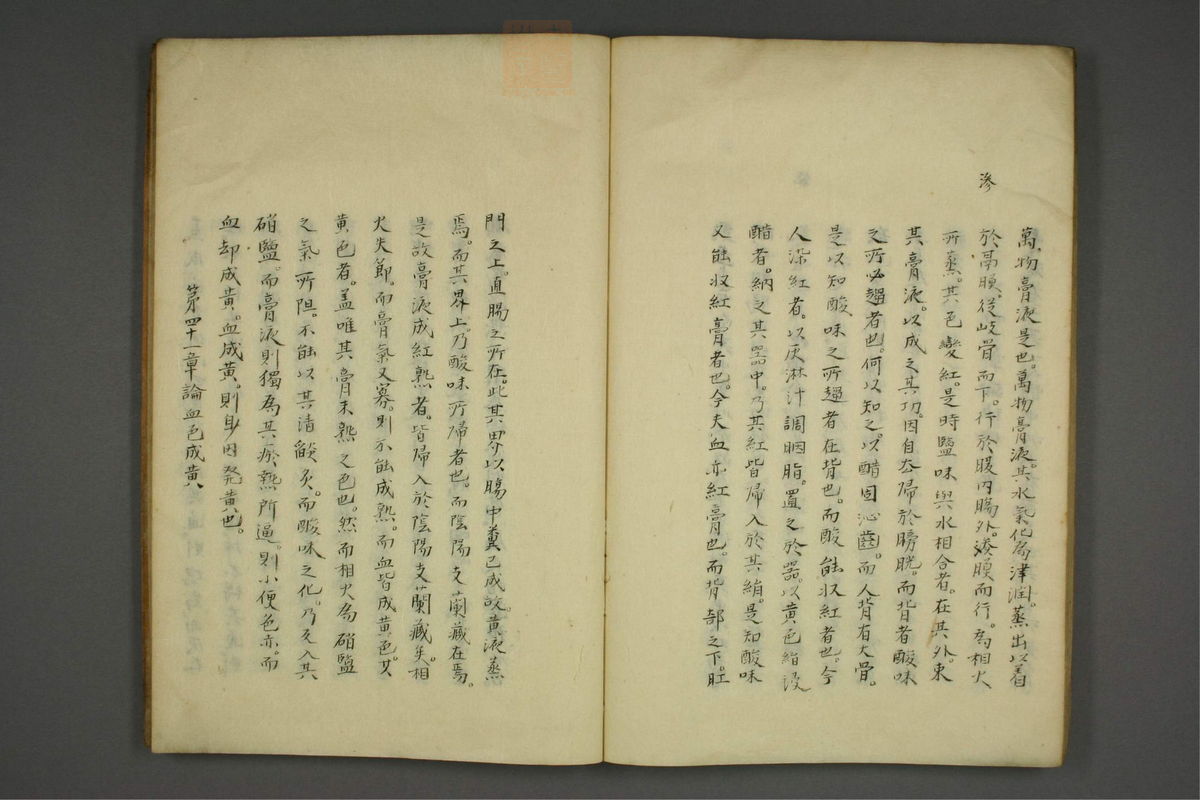 滲
萬物膏液是也。萬物膏液。其水氣化為津潤。蒸出以着
於鬲膜。從岐骨而下。行於腹内腸外。湊膜而行。為相火
所蒸。其色變紅。是時鹽味與水相合者。在其外。東
其膏液。以成之其功。因自忝歸於膀胱。而背者酸味
之所必趨者也。何以知之。以醋固沁齒。而人背有大骨。
是以知酸味之所趨者在背也。而酸能收紅者也。今
人染紅者。以灰淋汁調胭脂。置之於器。以黄色絹設
醋者。納之其器中。乃其紅皆歸入於其絹。是知酸味
又能收紅膏者也。今夫血亦紅膏也。而背部之下。肛
門之上。直腸之所在。此其界以腸中糞已成故。黄液蒸
焉。而其界上。乃酸味所歸者也。而陰陽支蘭藏在焉。
是故膏液成紅熟者。皆歸入於陰陽支蘭藏矣。相
火失節。而膏氣又寡。則不能成熟。而血皆成黄色。其
黄色者。盖唯其膏未熟之色也。然而相火為硝鹽
之氣所阻。不能以其清燄炙。而酸味之化。乃反入其
硝鹽。而膏液則獨為其瘀熱所逼。則小便色赤。而
血却成黄。血成黄。則身因発黄也。
第四十一章論血色成黄